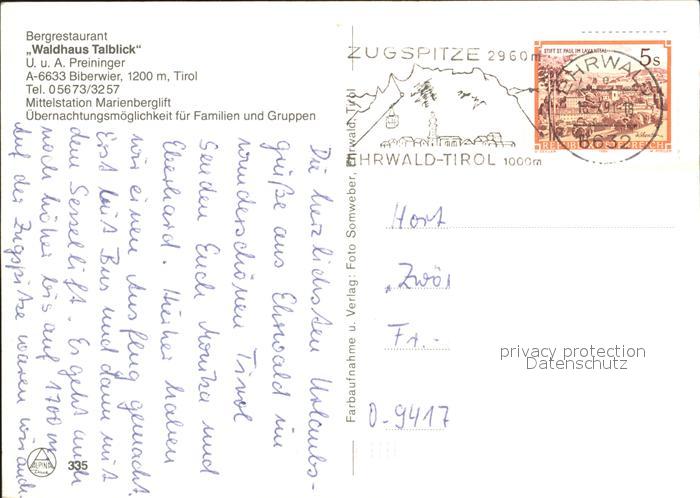 Bergrestaurant
„Waldhaus Talblick“
U. u. A. Preininger
A-6633 Biberwier, 1200 m, Tirol
Tel. 05673/3257
Mittelstation Marienberglift
Übernachtungsmöglichkeit für Familien und Gruppen
Die herzlichsten Urlaubs-
grüße aus Ehrwald im
wunderschönen Tirol
senden Euch Monika und
Eberhard. Hierher haben
wir einen Ausflug gemacht.
Erst mit Bus und dann mit
dem Sessellift. Es geht auch
noch höher bis auf 1700 m
Auf der Zugspitze waren wir auch.
ALPINA
335
Farbaufnahme u. Verlag: Foto Somweber, Ehrwald, Tirol
ZUGSPITZE 2960m
EHRWALD-TIROL 1000m
STIFT ST. PAUL IM LAVANTTAL
5s
REPUBLIK ÖSTERREICH
EHRWALD
6632
Hort
Fr.-
D-9417
privacy protection
Datenschutz